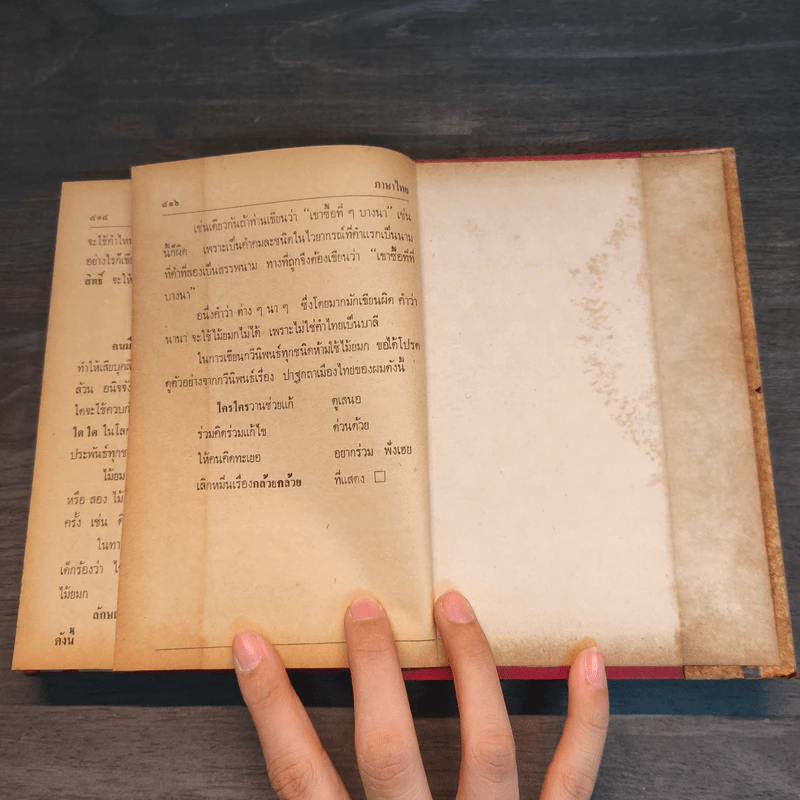 ๘๑๔
จะใช้คำไท
อย่างไรก็เขีย
สิทธิ์ จะให้
คนมี
ทำให้เสียบุคลิ
ล้วน อนิจจัง
ใดจะใช้ควบก
ใดใด ในโลก
ประพันธ์ทุกช
ไม้ยม
หรือ สอง ไม้
ครั้ง เช่น
ในทา
เด็กร้องว่า
ไม้ยมก
ลักษณ
ดังนี้
๘๑๖ ภาษาไทย
เช่นเดียวกันถ้าท่านเขียนว่า “เขาซื้อที่ ๆ บางนา” เช่น
นี้ก็ผิด เพราะเป็นคำคนละชนิดในไวยากรณ์ที่คำแรกเป็นนาม
ที่คำที่สองเป็นสรรพนาม ทางที่ถูกจึงต้องเขียนว่า “เขาซื้อที่ที่
บางนา”
อนึ่งคำว่า ต่าง ๆ นา ๆ ซึ่งโดยมากมักเขียนผิด คำว่า
นานา จะใช้ไม้ยมกไม่ได้ เพราะไม่ใช่คำไทยเป็นบาลี
ในการเขียนกวีนิพนธ์ทุกชนิดห้ามใช้ไม้ยมก ขอได้โปรด
ดูตัวอย่างจากกวีนิพนธ์เรื่อง ปาฐกถาเมืองไทยของผมดังนี้
ใครใครวานช่วยแก้ ดูเสนอ
ร่วมคิดร่วมแก้ไข ด่วนด้วย
ให้คนคิดทะเยอ อยากร่วม ฟังเฮย
เลิกหมึนเรื่องกล้วยกล้วย ที่แสดง □